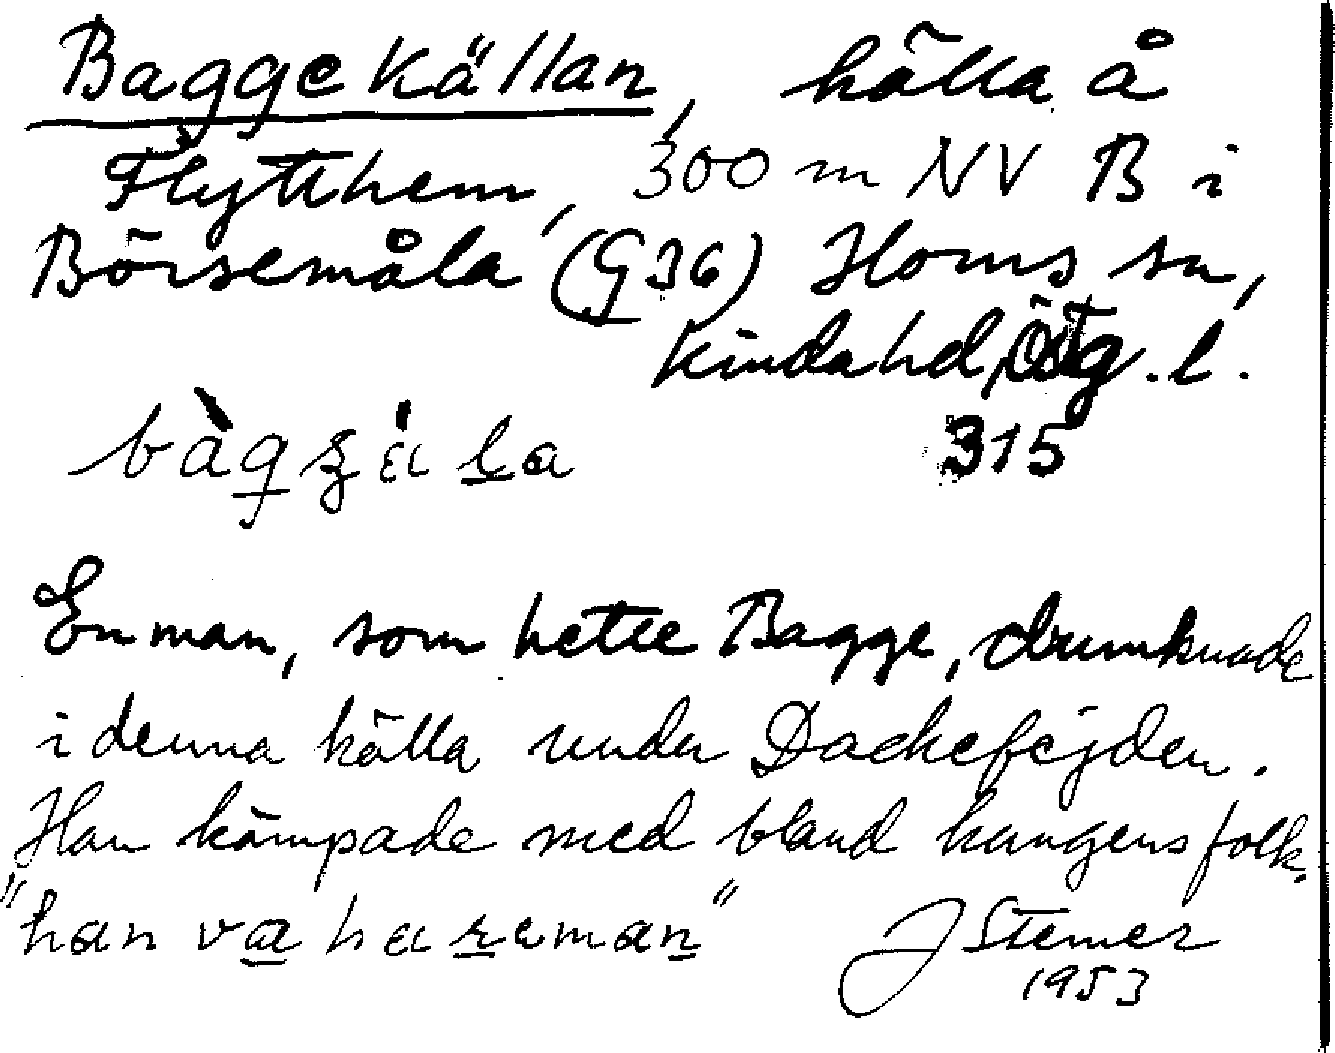 Baggekällan, källa å
Flytthem, 300 m NV B i
Börsemåla (G 36) Horns sn,
Kinda hd, Östg. l.
315
En man, som hette Bagge, drunknade
i denna källa under Dackefejden.
Han kämpade med bland kungens folk.
"han va hæreman"
J Stemer
1953